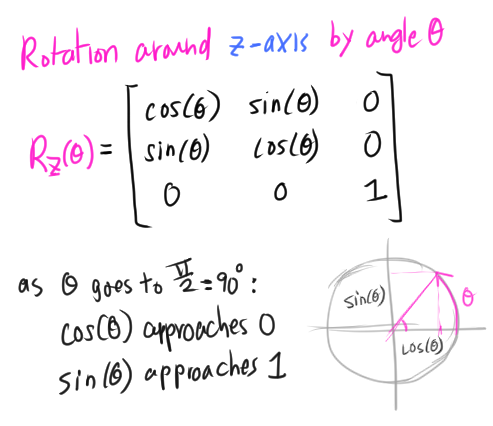 Rotation around z-axis by angle θ
R_z(θ) =
cos(θ) sin(θ) 0
sin(θ) cos(θ) 0
0 0 1
as θ goes to π/2 = 90°:
cos(θ) approaches 0
sin(θ) approaches 1
sin(θ)
θ
cos(θ)